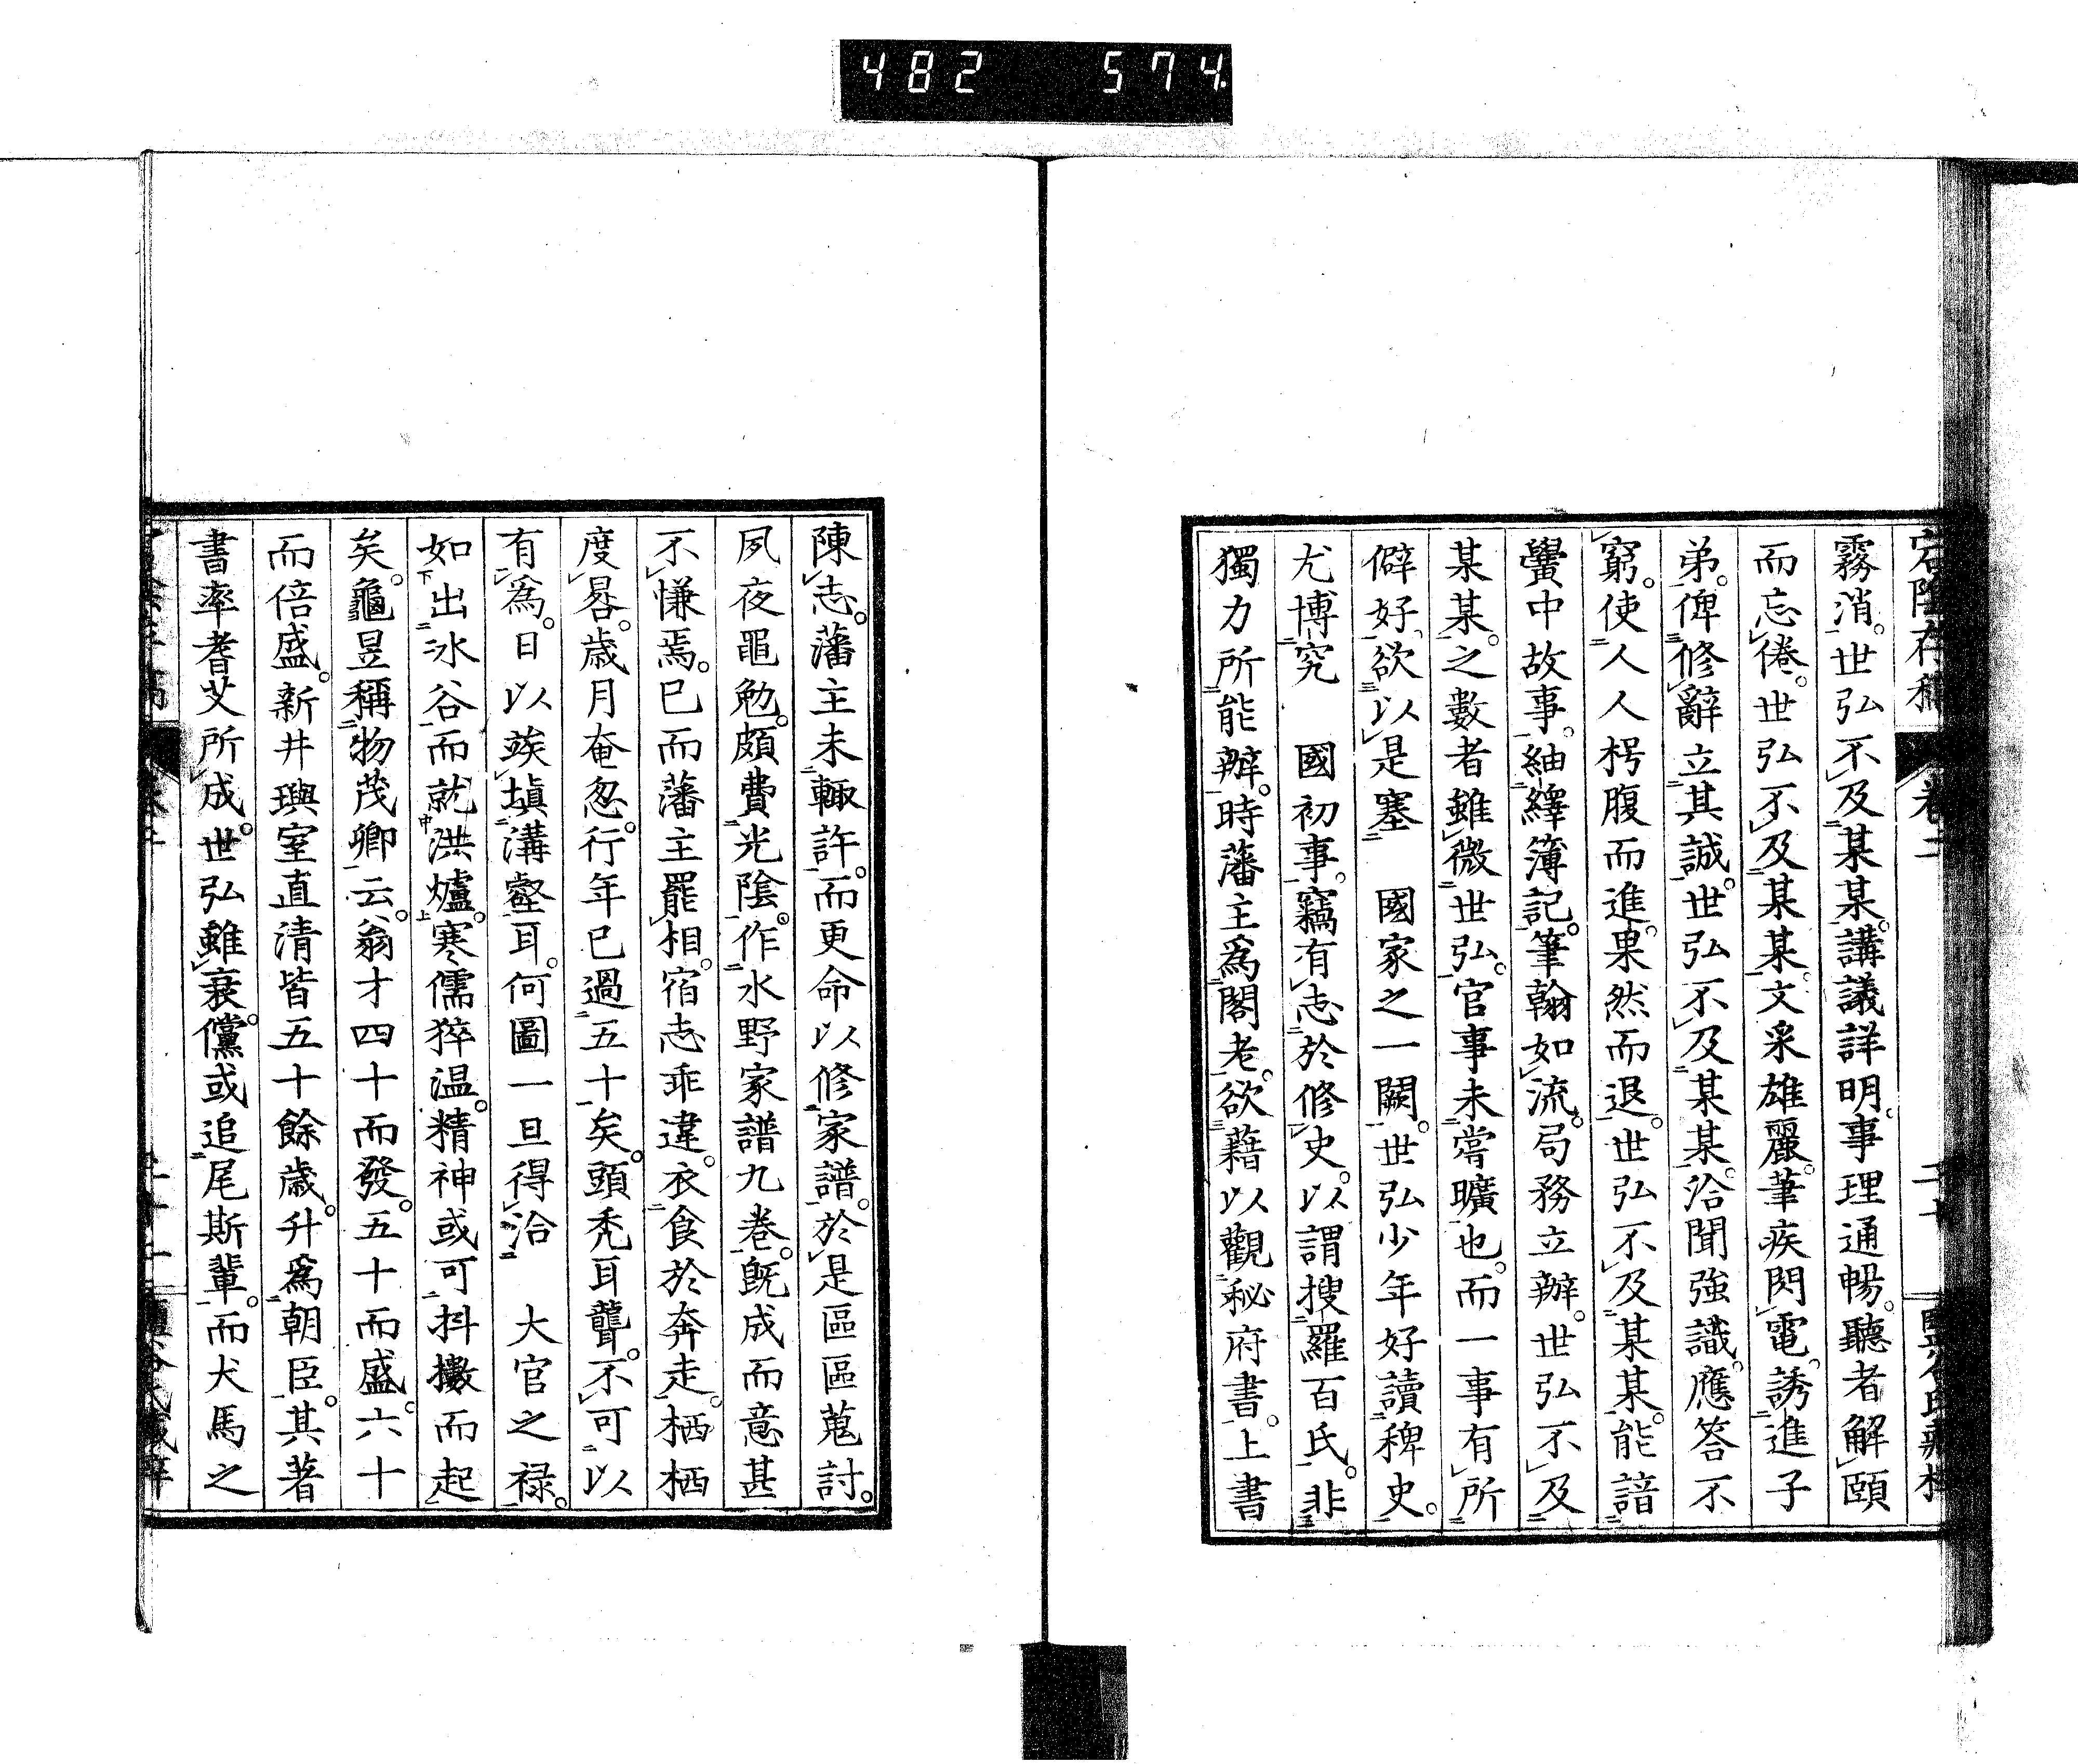 482 574
霧消。世弘不及某某。講議詳明。事理通暢。聽者解頤
而忘倦。世弘不及某某。文采雄麗。筆疾閃電。誘進子
弟。俾修辭立其誠。世弘不及某某。洽聞強識。應答不
窮。使人人枵腹而進。果然而退。世弘不及某某。能諳
黌中故事。紬繹簿記。筆翰如流。局務立辦。世弘不及
某某。之數者雖微世弘。官事未嘗曠也。而一事有所
僻好。欲以是塞　國家之一闕。世弘少年好讀稗史。
尤博究　國初事。竊有志於修史。以謂搜羅百氏。非
獨力所能辦。時藩主爲閣老。欲藉以觀秘府書。上書
陳志。藩主未輙許。而更命以修家譜。於是區區蒐討。
夙夜黽勉。頗費光陰。作水野家譜九巻。既成而意甚
不慊焉。已而藩主罷相。宿志乖違。衣食於奔走。栖栖
度晷。歳月奄忽。行年已過五十矣。頭禿耳聾。不可以
有爲。日以竢塡溝壑耳。何圖一旦得洽　大官之禄。
如出冰谷而就洪爐。寒儒猝温。精神或可抖擻而起
矣。龜昱稱物茂卿云。翁才四十而發。五十而盛。六十
而倍盛。新井璵室直清皆五十餘歳。升爲朝臣。其著
書率耆艾所成。世弘雖衰。儻或追尾斯輩。而犬馬之